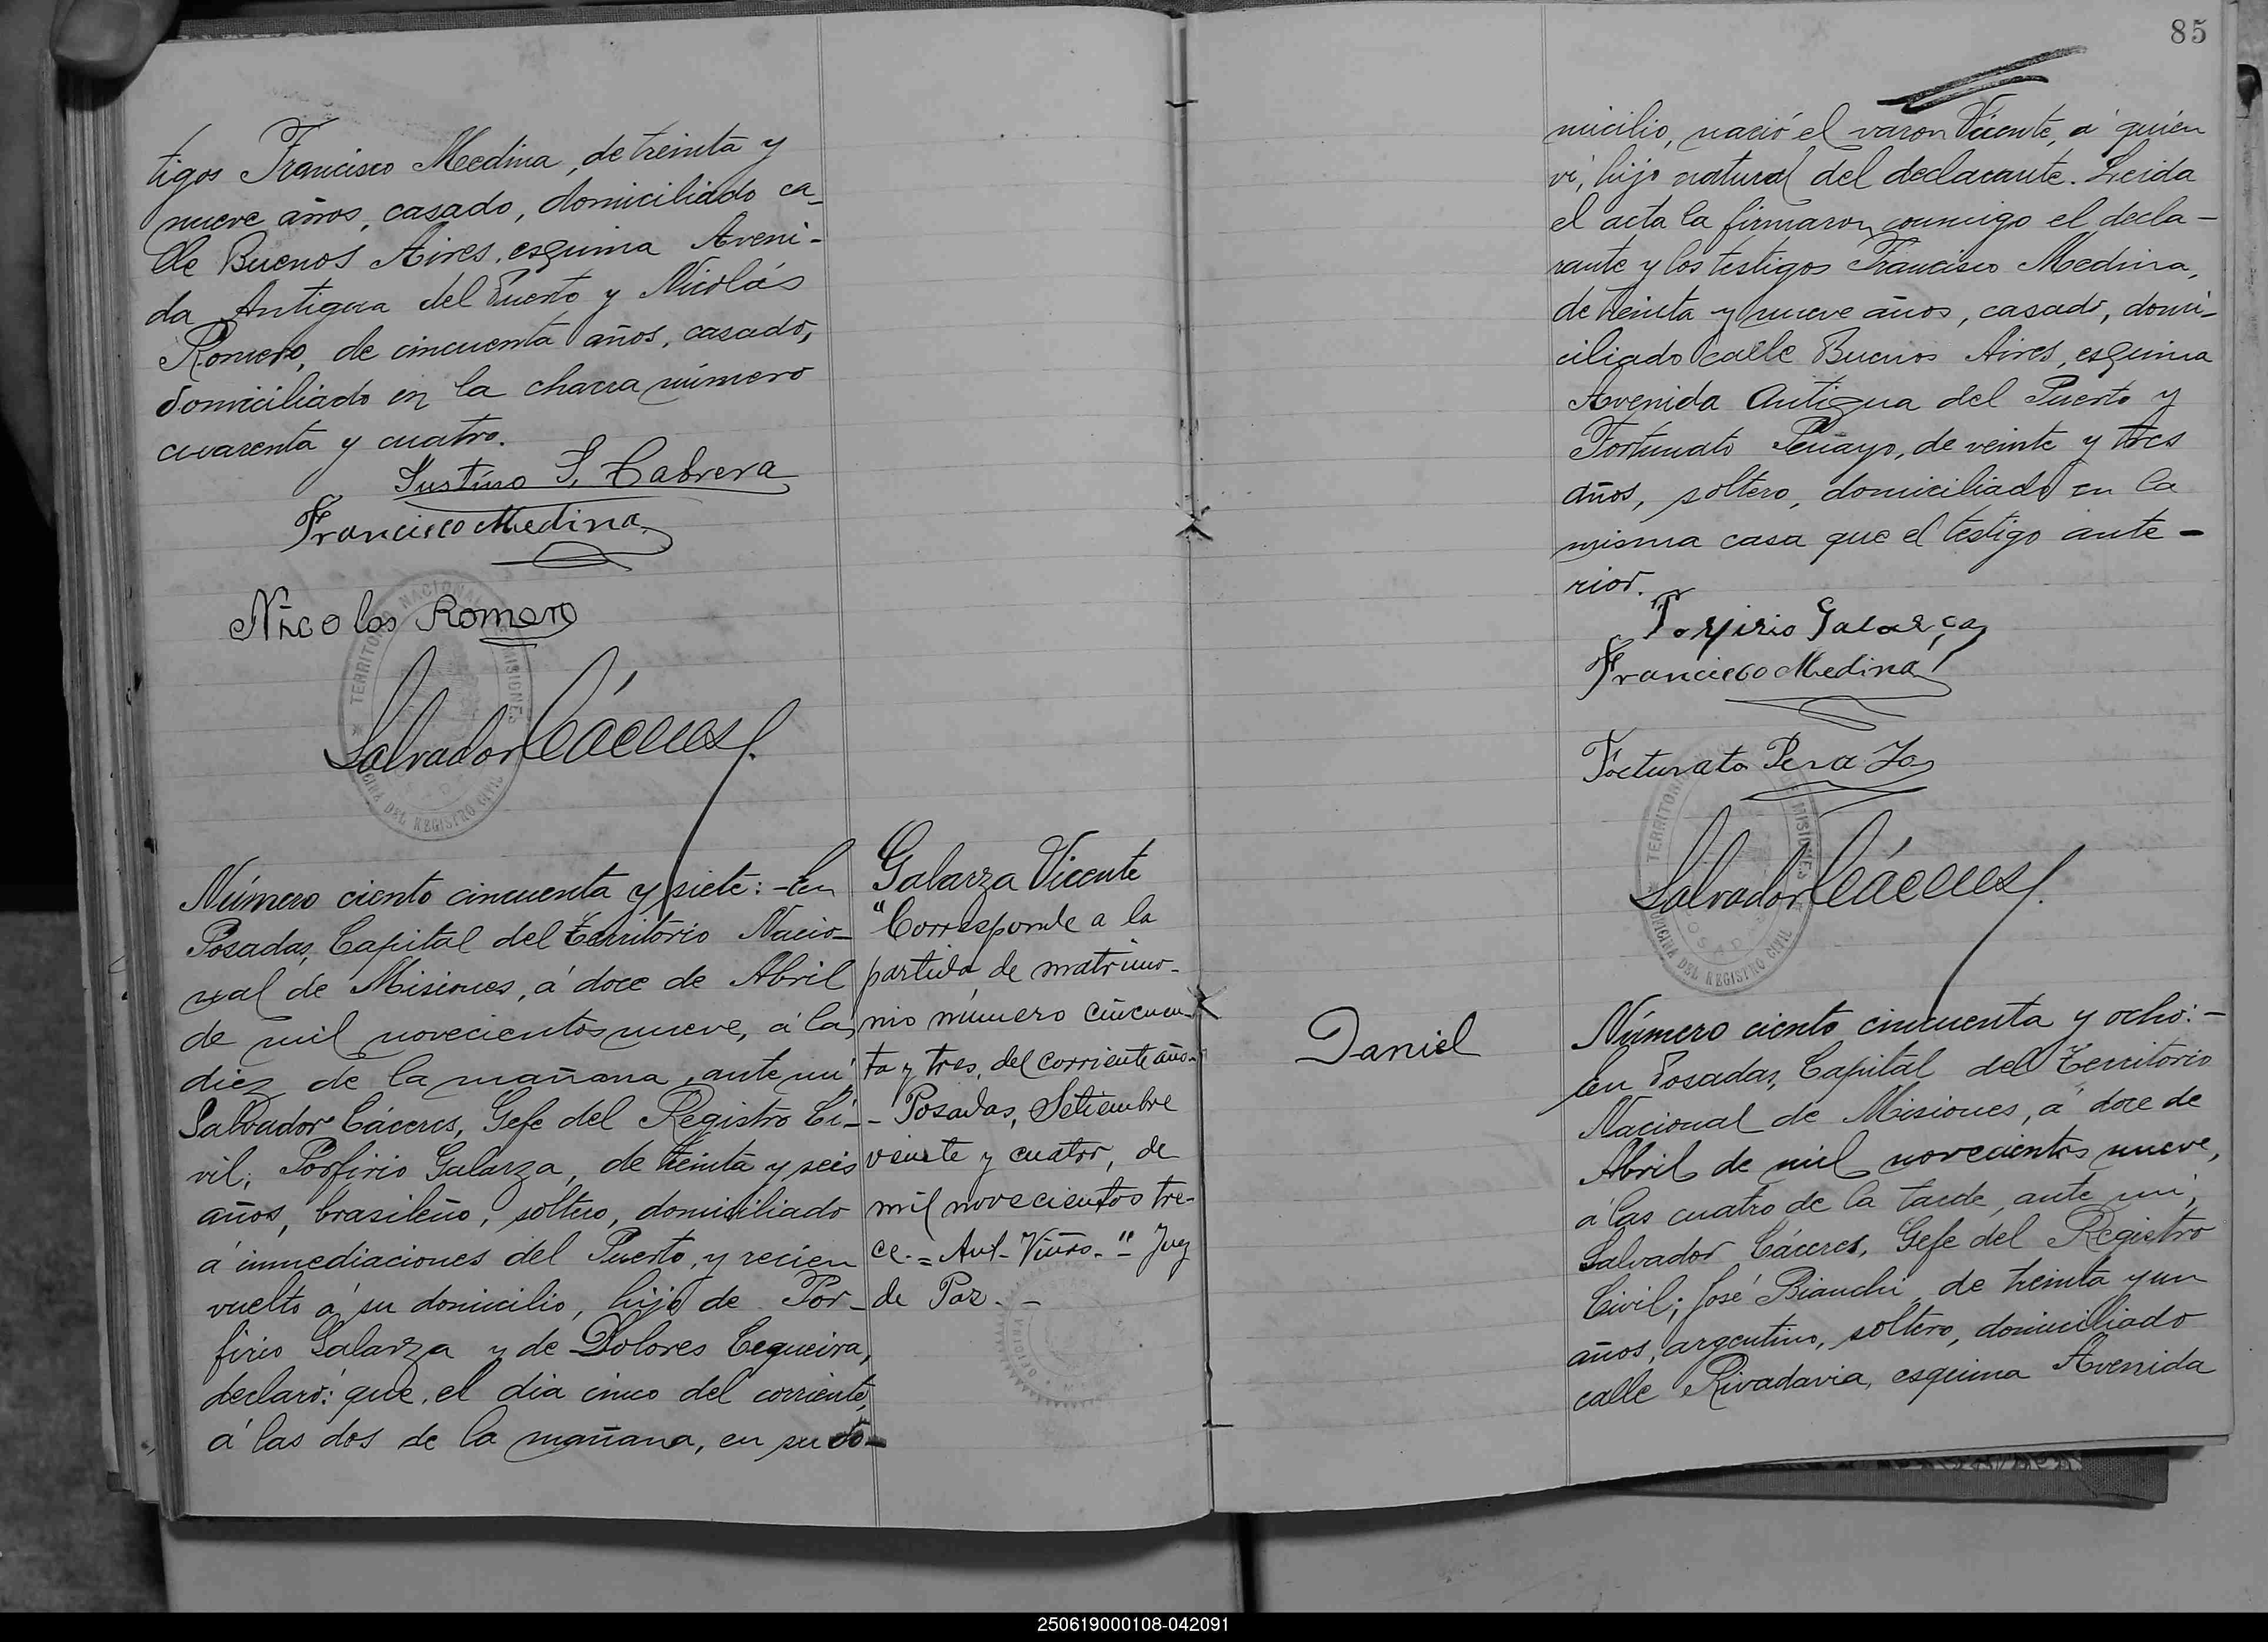 tigos Francisco Medina, de treinta y
nueve años, casado, domiciliado ca-
lle Buenos Aires, esquina Aveni-
da Antigua del Puerto y Nicolás
Romero, de cincuenta años, casado,
domiciliado en la chacra número
cuarenta y cuatro.
Justino S. Cabrera
Francisco Medina
Nicolas Romero
TERRITORIO NACIONAL DE MISIONES
OFICINA DEL REGISTRO CIVIL
Salvador Cáceres
Número ciento cincuenta y siete: - En
Posadas, Capital del Territorio Nacio-
nal de Misiones, á doce de Abril
de mil novecientos nueve, á las
diez de la mañana, ante mí,
Salvador Cáceres, Gefe del Registro Ci-
vil; Porfirio Galarza, de treinta y seis
años, brasileño, soltero, domiciliado
á inmediaciones del Puerto, y recien
vuelto á su domicilio, hijo de Por-
firio Galarza y de Dolores Cequeira,
declaró: que, el dia cinco del corriente,
á las dos de la mañana, en su do-
Galarza Vicente
"Corresponde a la
partida de matrimo-
nio número cincuen-
ta y tres, del corriente año.-
- Posadas, Setiembre
veinte y cuatro, de
mil novecientos tre-
ce.= Ant- Viñas.-" Juez
de Paz. -
85
micilio, nació el varon Vicente, á quien
ví, hijo natural del declarante. Leida
el acta la firmaron conmigo el decla-
rante y los testigos Francisco Medina,
de treinta y nueve años, casado, domi-
ciliado calle Buenos Aires, esquina
Avenida Antigua del Puerto y
Fortunato Penayo, de veinte y tres
años, soltero, domiciliado en la
misma casa que el testigo ante-
rior.
Porfirio Galarça
Francisco Medina
Fortunato Penayo
TERRITORIO MISIONES
OFICINA DEL REGISTRO CIVIL
POSADAS
Salvador Cáceres
Daniel
Número ciento cincuenta y ocho: -
En Posadas, Capital del Territorio
Nacional de Misiones, á doce de
Abril de mil novecientos nueve,
á las cuatro de la tarde, ante mí,
Salvador Cáceres, Gefe del Registro
Civil; José Bianchi, de treinta y un
años, argentino, soltero, domiciliado
calle Rivadavia, esquina Avenida
250619000108-042091